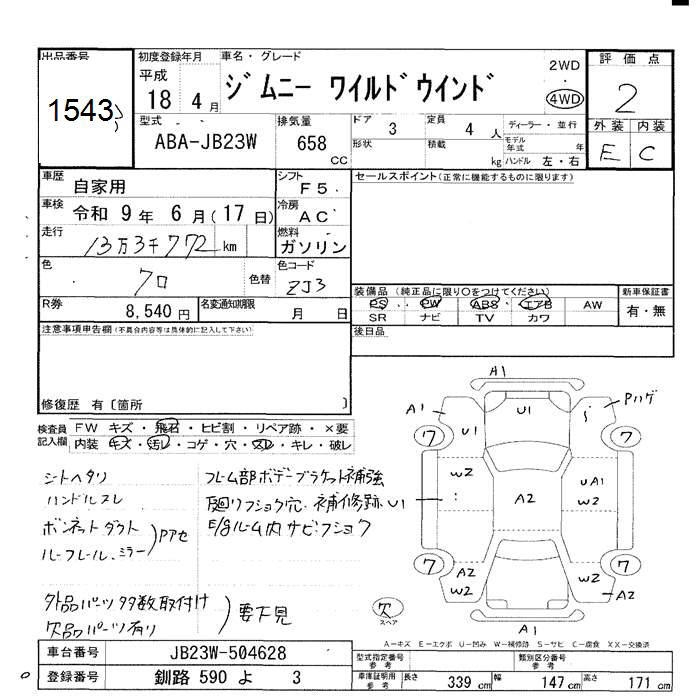 出品番号
1543
初度登録年月
平成
18 4 月
車名・グレード
ジムニー ワイルドウインド
2WD
4WD
評価点
2
外装 内装
E C
型式
ABA-JB23W
排気量
658 CC
ドア 3
定員 4 人
形状
積載 kg
ディーラー・並行
モデル年式 年
ハンドル 左・右
車歴
自家用
シフト
F5
セールスポイント(正常に機能するものに限ります)
車検
令和 9 年 6 月(17 日)
冷房
AC
走行
13万3千772 km
燃料
ガソリン
色
クロ
色替
色コード
ZJ3
装備品(純正品に限り○をつけてください)
PS PW ABS エアB AW
SR ナビ TV カワ
新車保証書
有・無
R券
8,540 円
名変通知期限
月 日
後日品
注意事項申告欄(不具合内容等は具体的に記入して下さい)
修復歴 有〔箇所 〕
検査員記入欄
FW キズ・飛石・ヒビ割・リペア跡・×要
内装 キズ・汚レ・コゲ・穴・スレ・キレ・破レ
シートヘタリ
ハンドルスレ
ボンネットダクト
ルーフレール、ミラー
Pアセ
外品パーツ多数取付け
欠品パーツ有り
要下見
フレーム部ボデーブラケット補強
廻りフショク穴・補修跡
E/gルーム内サビ・フショク
A1
A1
U1
U1
Pハゲ
ワ
ワ
W2
A2
UA1
W2
U1
ワ
ワ
A2
W2
W2
A2
欠
スペア
A1
A-キズ E-エクボ U-凹み W-補修跡 S-サビ C-腐食 XX-交換済
車台番号
JB23W-504628
登録番号
釧路 590 よ 3
型式指定番号
参考
類別区分番号
参考
車庫証明用
参考
長さ 339 cm
幅 147 cm
高さ 171 cm